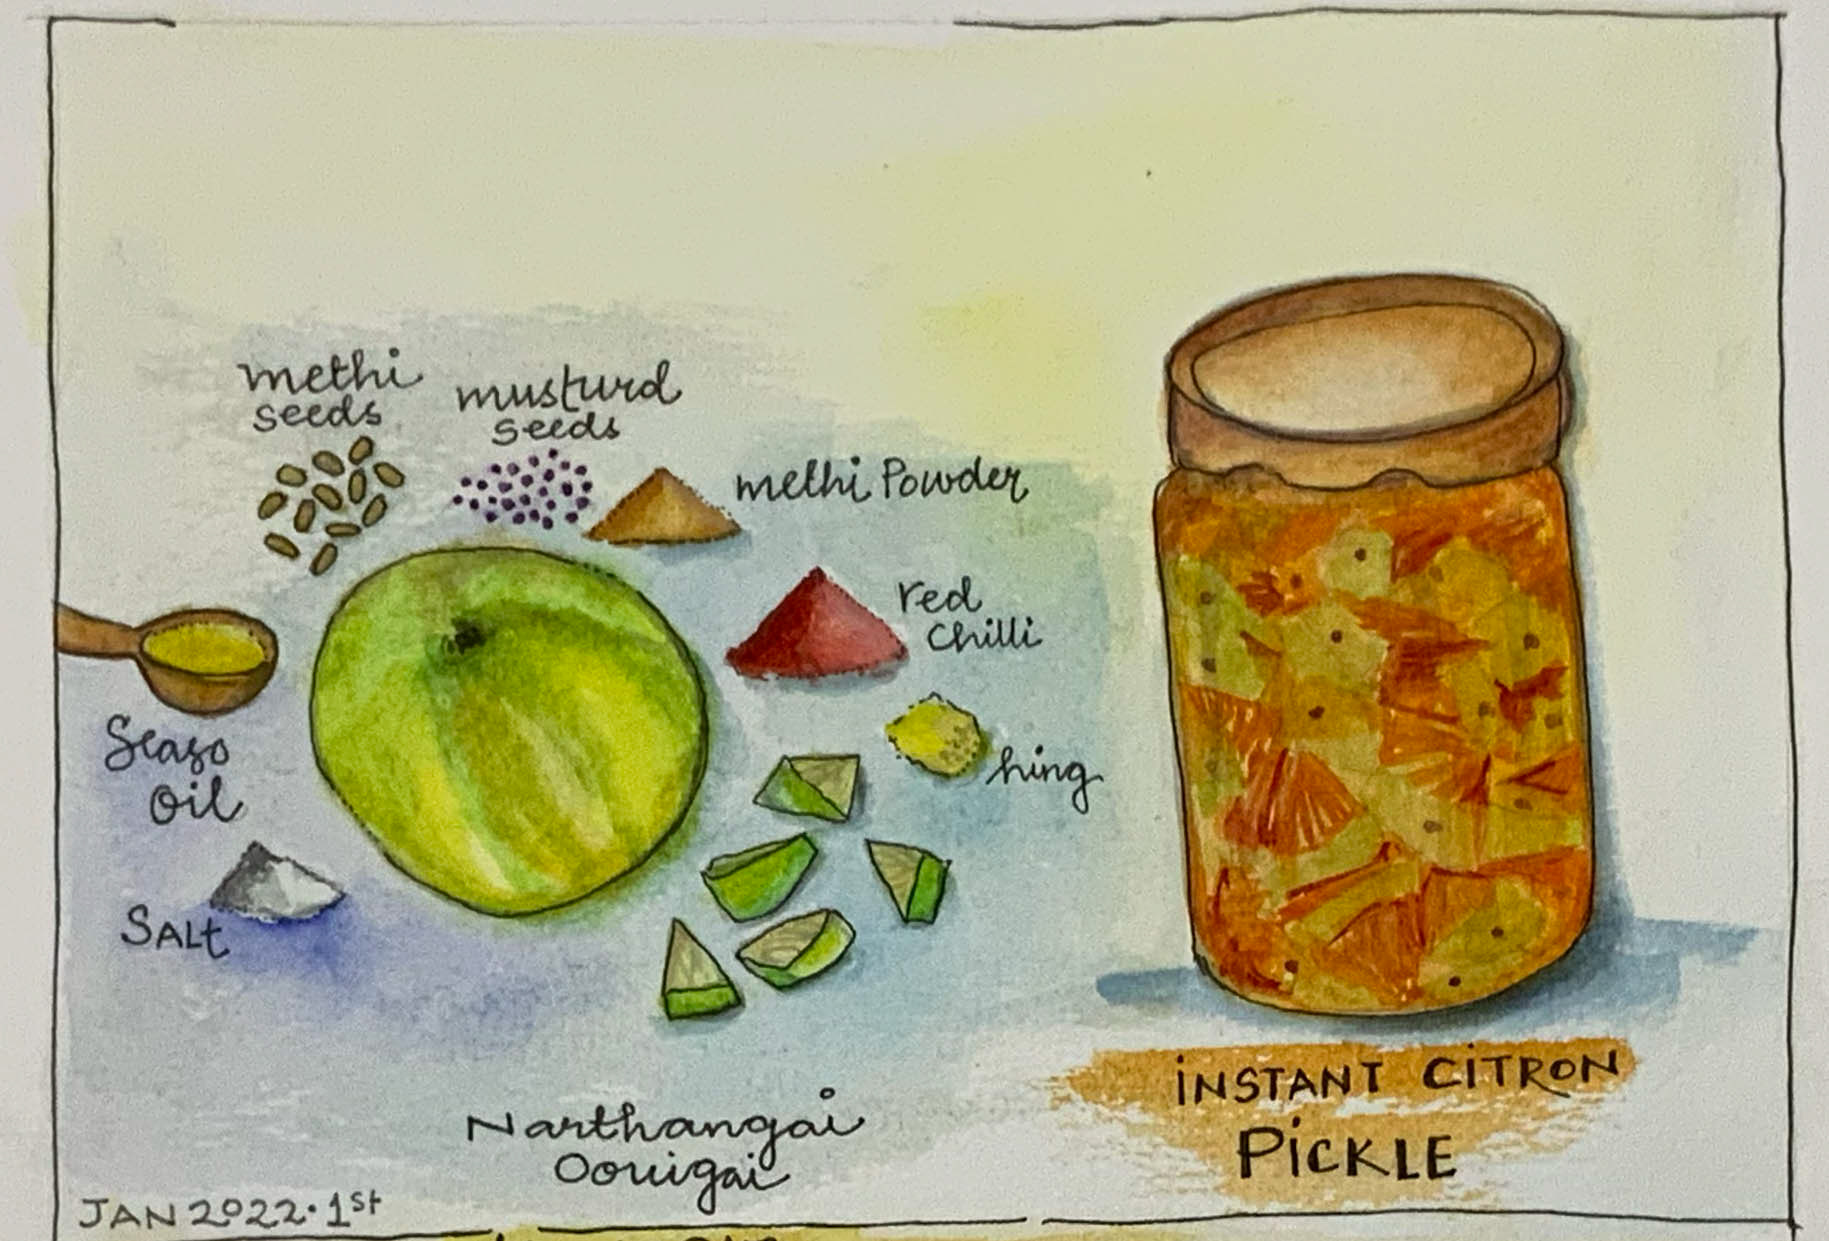 methi
seeds
musturd
seeds
methi Powder
red
chilli
hing
Seaso
oil
SALt
Narthangai
Oorugai
iNSTANT CiTRON
PiCKLE
JAN 2022. 1st